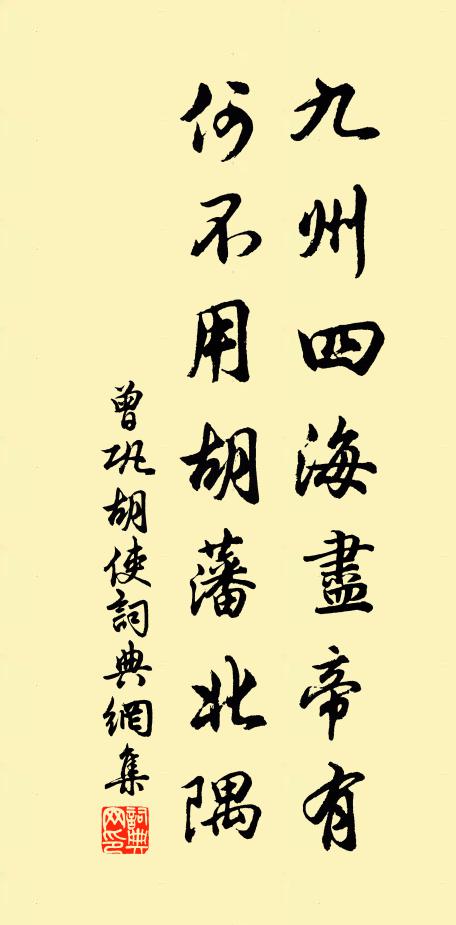 九州四海盡帝有
何不用胡藩北隅
曾巩胡使詞典網集
詞典網印